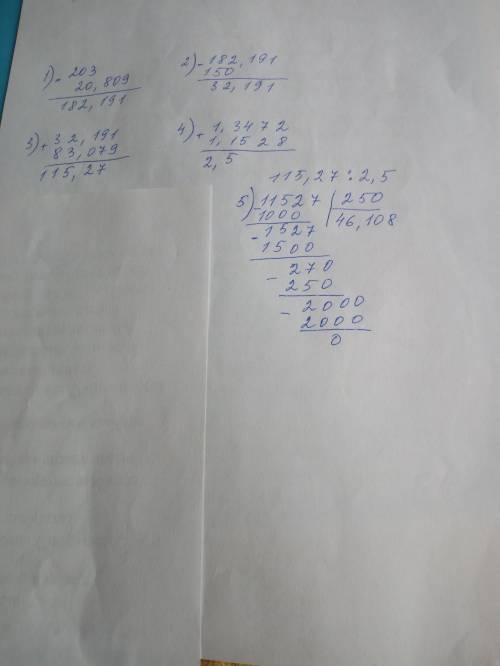 1) - 203
20,809
182,191
2) - 182,191
150
32,191
3) + 32,191
83,079
115,27
4) + 1,3472
1,1528
2,5
115,27 : 2,5
5) - 11527 | 250
1000 46,108
- 1527
1500
- 270
250
- 2000
2000
0